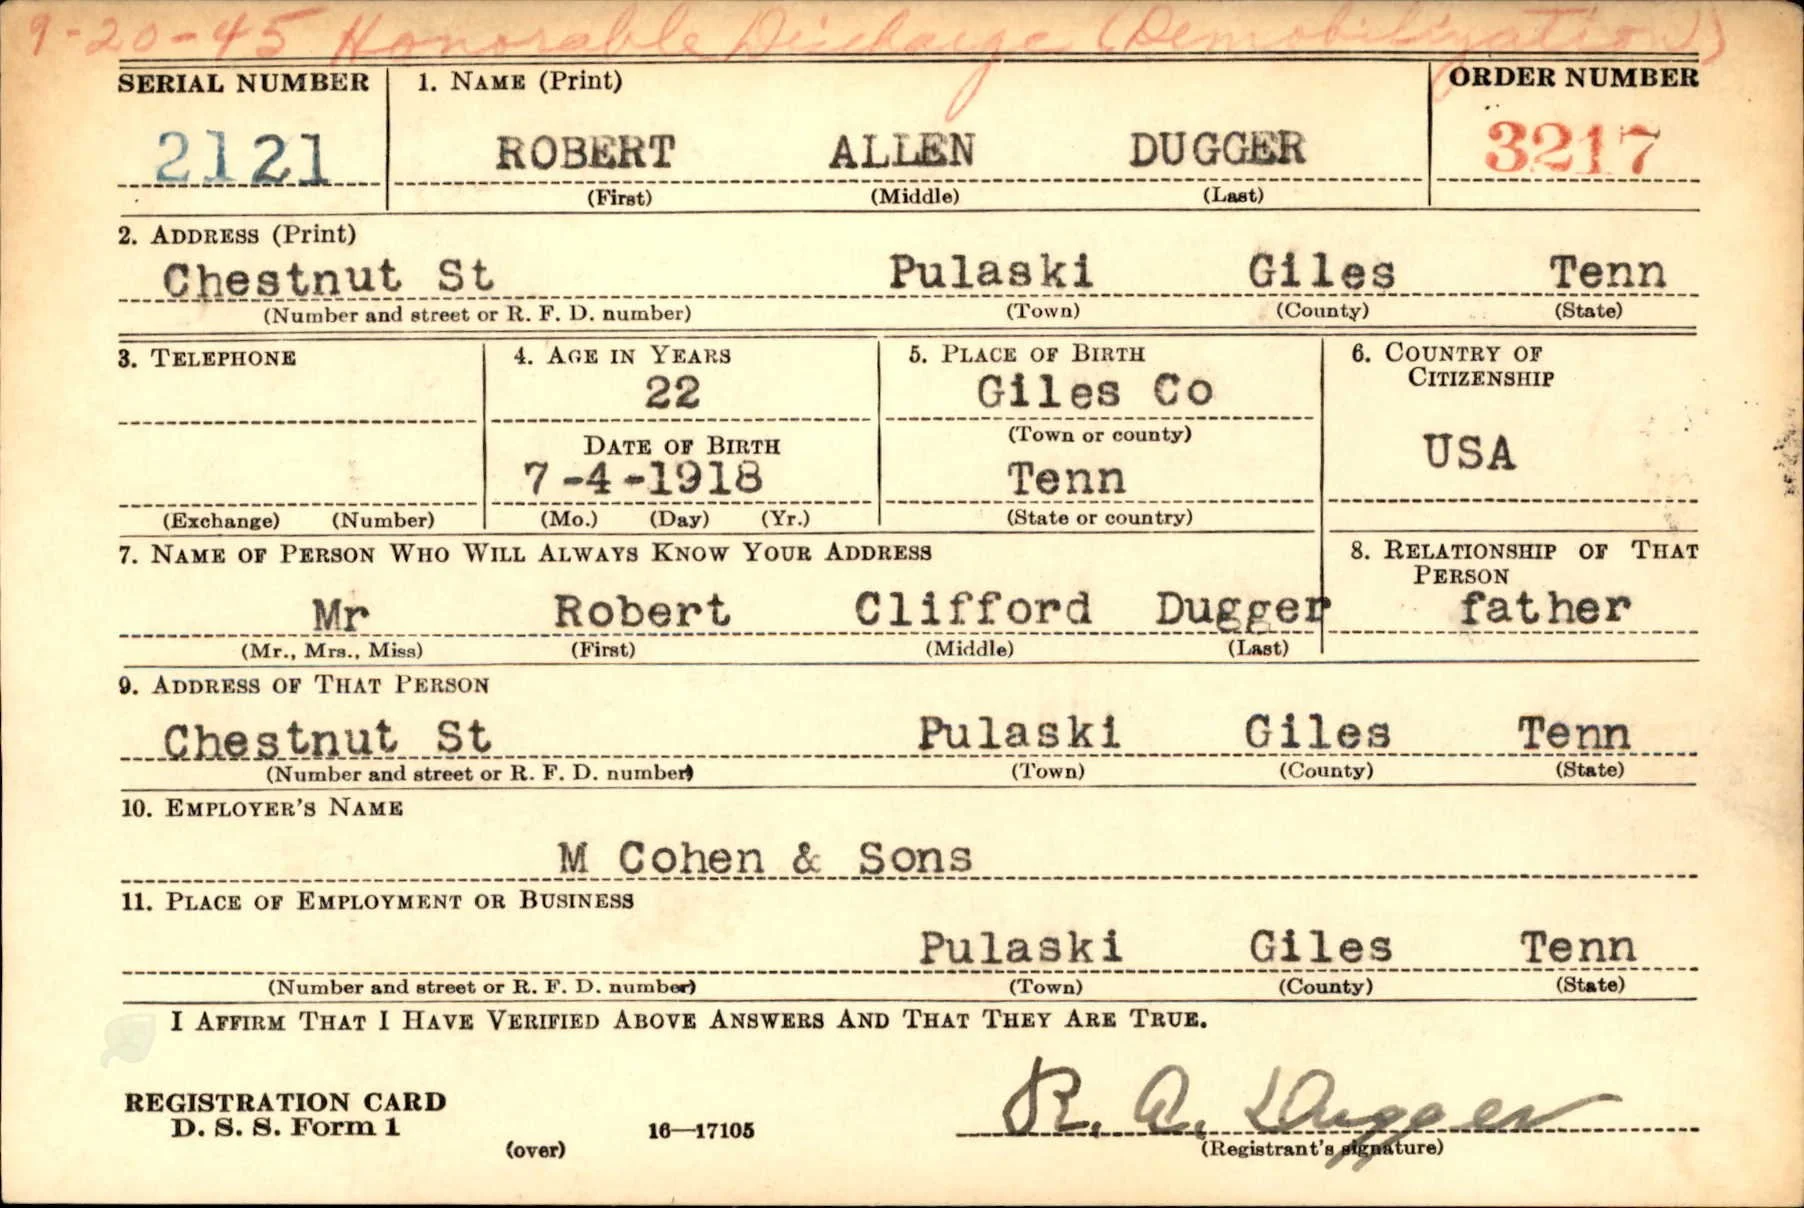 9-20-45 Honorable Discharge (Demobilization)
SERIAL NUMBER 1. NAME (Print) ORDER NUMBER
2121 ROBERT ALLEN DUGGER 3217
(First) (Middle) (Last)
2. ADDRESS (Print)
Chestnut St Pulaski Giles Tenn
(Number and street or R. F. D. number) (Town) (County) (State)
3. TELEPHONE 4. AGE IN YEARS 5. PLACE OF BIRTH 6. COUNTRY OF
CITIZENSHIP
22 Giles Co
(Town or county)
DATE OF BIRTH USA
7-4-1918 Tenn
(Exchange) (Number) (Mo.) (Day) (Yr.) (State or country)
7. NAME OF PERSON WHO WILL ALWAYS KNOW YOUR ADDRESS 8. RELATIONSHIP OF THAT
PERSON
Mr Robert Clifford Dugger father
(Mr., Mrs., Miss) (First) (Middle) (Last)
9. ADDRESS OF THAT PERSON
Chestnut St Pulaski Giles Tenn
(Number and street or R. F. D. number) (Town) (County) (State)
10. EMPLOYER'S NAME
M Cohen & Sons
11. PLACE OF EMPLOYMENT OR BUSINESS
Pulaski Giles Tenn
(Number and street or R. F. D. number) (Town) (County) (State)
I AFFIRM THAT I HAVE VERIFIED ABOVE ANSWERS AND THAT THEY ARE TRUE.
R. A. Dugger
REGISTRATION CARD
D. S. S. Form 1
(over) 16—17105 (Registrant's signature)